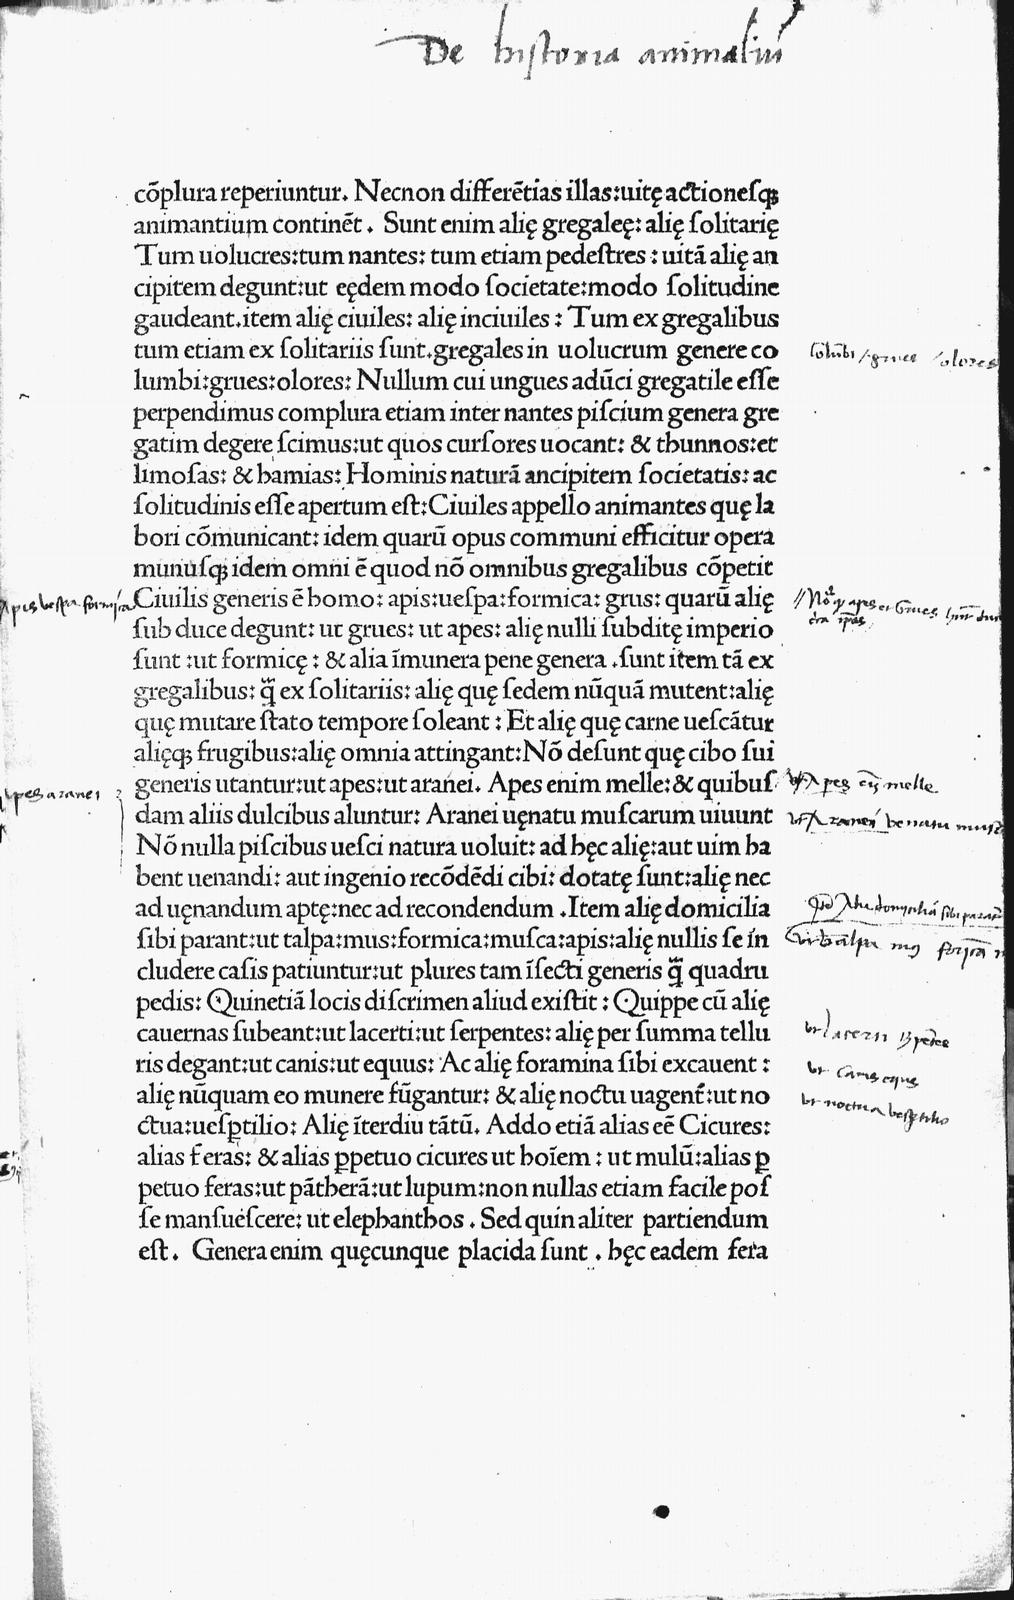 De historia animaliū
cōplura reperiuntur. Necnon differētias illas:uitę actionesqȝ
animantium continēt. Sunt enim alię gregaleę: alię ſolitarię
Tum uolucres:tum nantes: tum etiam pedeſtres : uitā alię an
cipitem degunt:ut eędem modo ſocietate:modo ſolitudine
gaudeant.item alię ciuiles: alię inciuiles : Tum ex gregalibus
tum etiam ex ſolitariis ſunt.gregales in uolucrum genere co
lumbi:grues:olores: Nullum cui ungues adūci gregatile eſſe
perpendimus complura etiam inter nantes piſcium genera gre
gatim degere ſcimus:ut quos curſores uocant: & thunnos:et
limoſas: & hamias: Hominis naturā ancipitem ſocietatis: ac
ſolitudinis eſſe apertum eſt:Ciuiles appello animantes quę la
bori cōmunicant: idem quarū opus communi efficitur opera
munuſqȝ idem omni ē quod nō omnibus gregalibus cōpetit
Ciuilis generis ē homo: apis:ueſpa:formica: grus: quarū alię
ſub duce degunt: ut grues: ut apes: alię nulli ſubditę imperio
ſunt :ut formicę : & alia īmunera pene genera .ſunt item tā ex
gregalibus: q̄ ex ſolitariis: alię quę ſedem nūquā mutent:alię
quę mutare ſtato tempore ſoleant : Et alię quę carne ueſcātur
alięqȝ frugibus:alię omnia attingant:Nō deſunt quę cibo ſui
generis utantur:ut apes:ut aranei. Apes enim melle:& quibuſ
dam aliis dulcibus aluntur: Aranei uęnatu muſcarum uiuunt
Nō nulla piſcibus ueſci natura uoluit: ad hęc alię:aut uim ha
bent uenandi: aut ingenio recōdēdi cibi: dotatę ſunt:alię nec
ad uęnandum aptę:nec ad recondendum .Item alię domicilia
ſibi parant:ut talpa:mus:formica:muſca:apis:alię nullis ſe in
cludere caſis patiuntur:ut plures tam īſecti generis q̄ quadru
pedis: Quinetiā locis diſcrimen aliud exiſtit : Quippe cū alię
cauernas ſubeant:ut lacerti:ut ſerpentes: alię per ſumma tellu
ris degant:ut canis:ut equus: Ac alię foramina ſibi excauent :
alię nūquam eo munere fūgantur: & alię noctu uagent̄:ut no
ctua:ueſꝑtilio: Alię īterdiu tātū. Addo etiā alias eē Cicures:
alias feras: & alias ꝑpetuo cicures ut hoīem : ut mulū:alias ꝑ
petuo feras:ut pātherā:ut lupum:non nullas etiam facile poſ
ſe manſueſcere: ut elephanthos . Sed quin aliter partiendum
eſt. Genera enim quęcunque placida ſunt . hęc eadem fera
grues olores
Apis vespa formica
apes et Grues
Apes aranei
Apes melle
ut Aranei venatu
ut lacerti
ut canis equs
ut noctua vespertilio